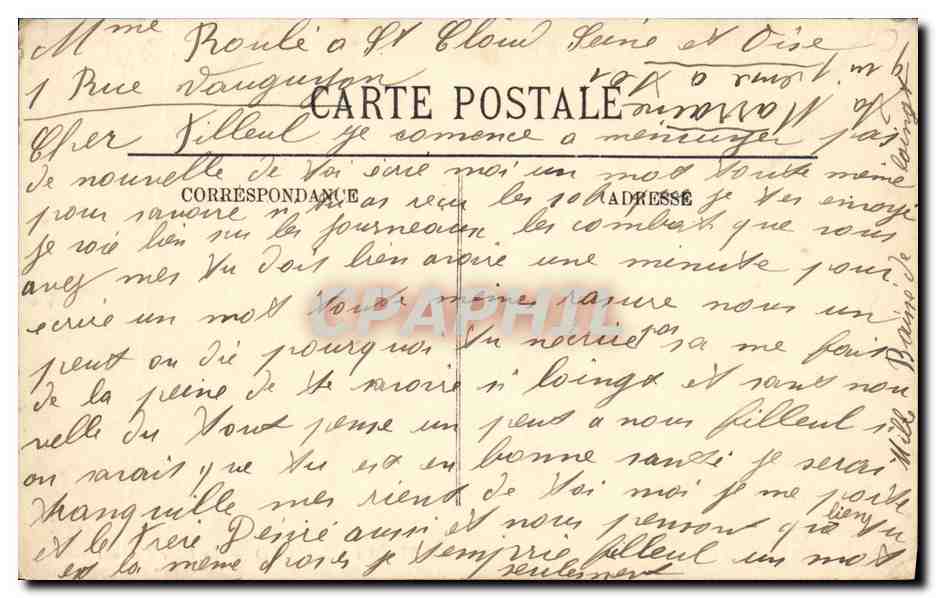 Mme Roulé a St Cloud Seine et Oise
1 Rue Vauguyon
CARTE POSTALE
Cher filleul je comence a m'einuiyer pas
de nouvelle de toi écrié moi un mot toute même
CORRESPONDANCE
ADRESSE
pour savoire si tu as reçu les je tes envoyé
je voie bien sur les journeaux les combat que vous
avez mes tu doit bien avoire une minute pour
ecrire un mot toute même rasure nous un
peut on dié pourquoi tu n'ecrié pas sa me fait
de la peine de te savoire si loingt et sant nou
velle du tout pense un peut a nous filleul si
on savait que tu est en bonne santé je serai
tranquille mes rient de toi moi je me porte bien
et le frère Désiré aussi et nous pensont que tu
est la même chose je t'emprie filleul un mot
seulement
ta Marraine
Mille Baisé de loingt
CPAPHIL